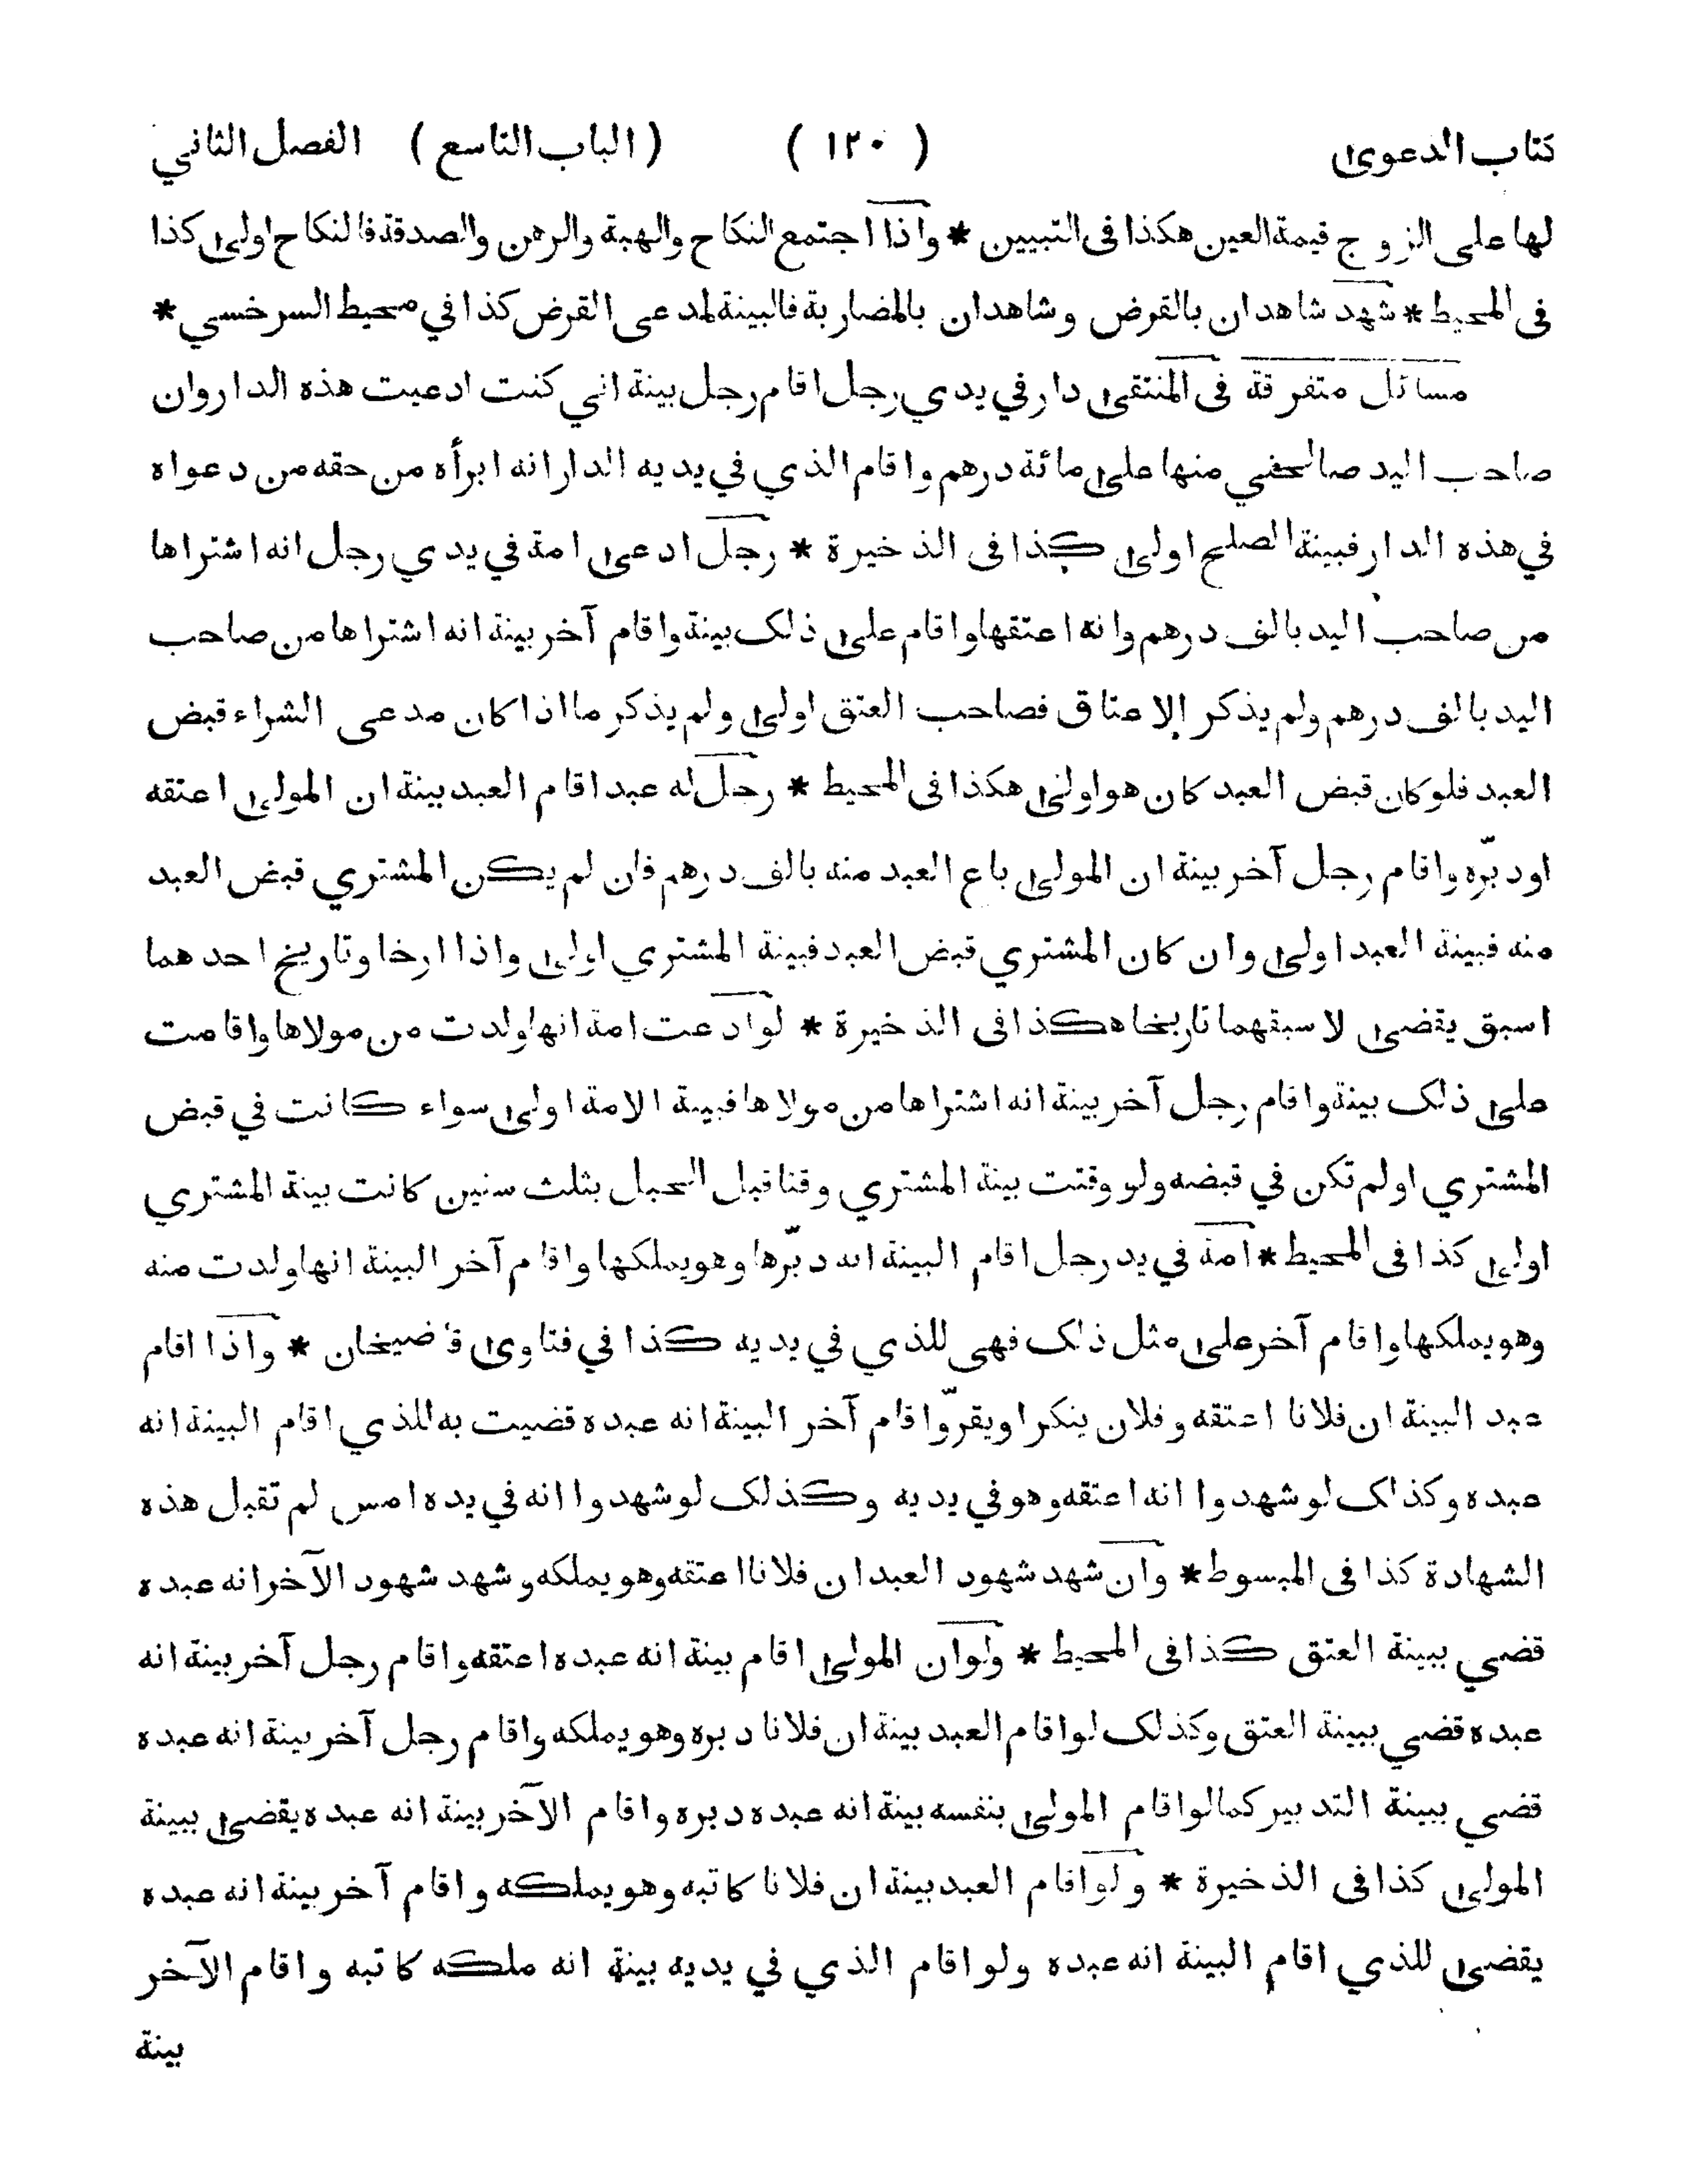 كتاب الدعوى ( ١٢٠ ) ( الباب التاسع ) الفصل الثاني
لها على الزوج قيمة العين هكذا فى التبيين * واذا اجتمع النكاح والهبة والرهن والصدقة فالنكاح اولى كذا
فى المحيط * شهد شاهدان بالقرض وشاهدان بالمضاربة فالبينة لمدعى القرض كذا في محيط السرخسي *
مسائل متفرقة فى المنتقى دار في يدي رجل اقام رجل بينة اني كنت ادعيت هذه الدار وان
صاحب اليد صالحني منها على مائة درهم واقام الذي في يديه الدار انه ابرأه من حقه من دعواه
في هذه الدار فبينة الصلح اولى كذا فى الذخيرة * رجل ادعى امة في يدي رجل انه اشتراها
من صاحب اليد بالف درهم وانه اعتقها واقام على ذلك بينة واقام آخر بينة انه اشتراها من صاحب
اليد بالف درهم ولم يذكر الاعتاق فصاحب العتق اولى ولم يذكر ما اذا كان مدعى الشراء قبض
العبد فلو كان قبض العبد كان هو اولى هكذا فى المحيط * رجل له عبد اقام العبد بينة ان المولى اعتقه
او دبّره واقام رجل آخر بينة ان المولى باع العبد منه بالف درهم فان لم يكن المشتري قبض العبد
منه فبينة العبد اولى وان كان المشتري قبض العبد فبينة المشتري اولى واذا ارخا وتاريخ احدهما
اسبق يقضى لاسبقهما تاريخا هكذا فى الذخيرة * لو ادعت امة انها ولدت من مولاها واقامت
على ذلك بينة واقام رجل آخر بينة انه اشتراها من مولاها فبينة الامة اولى سواء كانت في قبض
المشتري او لم تكن في قبضه ولو وقتت بينة المشتري وقتا قبل الحبل بثلث سنين كانت بينة المشتري
اولى كذا فى المحيط * امة في يد رجل اقام البينة انه دبّرها وهو يملكها واقام آخر البينة انها ولدت منه
وهو يملكها واقام آخر على مثل ذلك فهى للذي في يديه كذا في فتاوى قاضيخان * واذا اقام
عبد البينة ان فلانا اعتقه وفلان ينكر او يقرّ واقام آخر البينة انه عبده قضيت به للذي اقام البينة انه
عبده وكذلك لو شهدوا انه اعتقه وهو في يديه وكذلك لو شهدوا انه في يده امس لم تقبل هذه
الشهادة كذا فى المبسوط * وان شهد شهود العبد ان فلانا اعتقه وهو يملكه وشهد شهود الآخر انه عبده
قضي ببينة العتق كذا فى المحيط * ولو ان المولى اقام بينة انه عبده اعتقه واقام رجل آخر بينة انه
عبده قضي ببينة العتق وكذلك لو اقام العبد بينة ان فلانا دبره وهو يملكه واقام رجل آخر بينة انه عبده
قضي ببينة التدبير كما لو اقام المولى بنفسه بينة انه عبده دبره واقام الآخر بينة انه عبده يقضى ببينة
المولى كذا فى الذخيرة * ولو اقام العبد بينة ان فلانا كاتبه وهو يملكه واقام آخر بينة انه عبده
يقضى للذي اقام البينة انه عبده ولو اقام الذي في يديه بينة انه ملكه كاتبه واقام الآخر
بينة